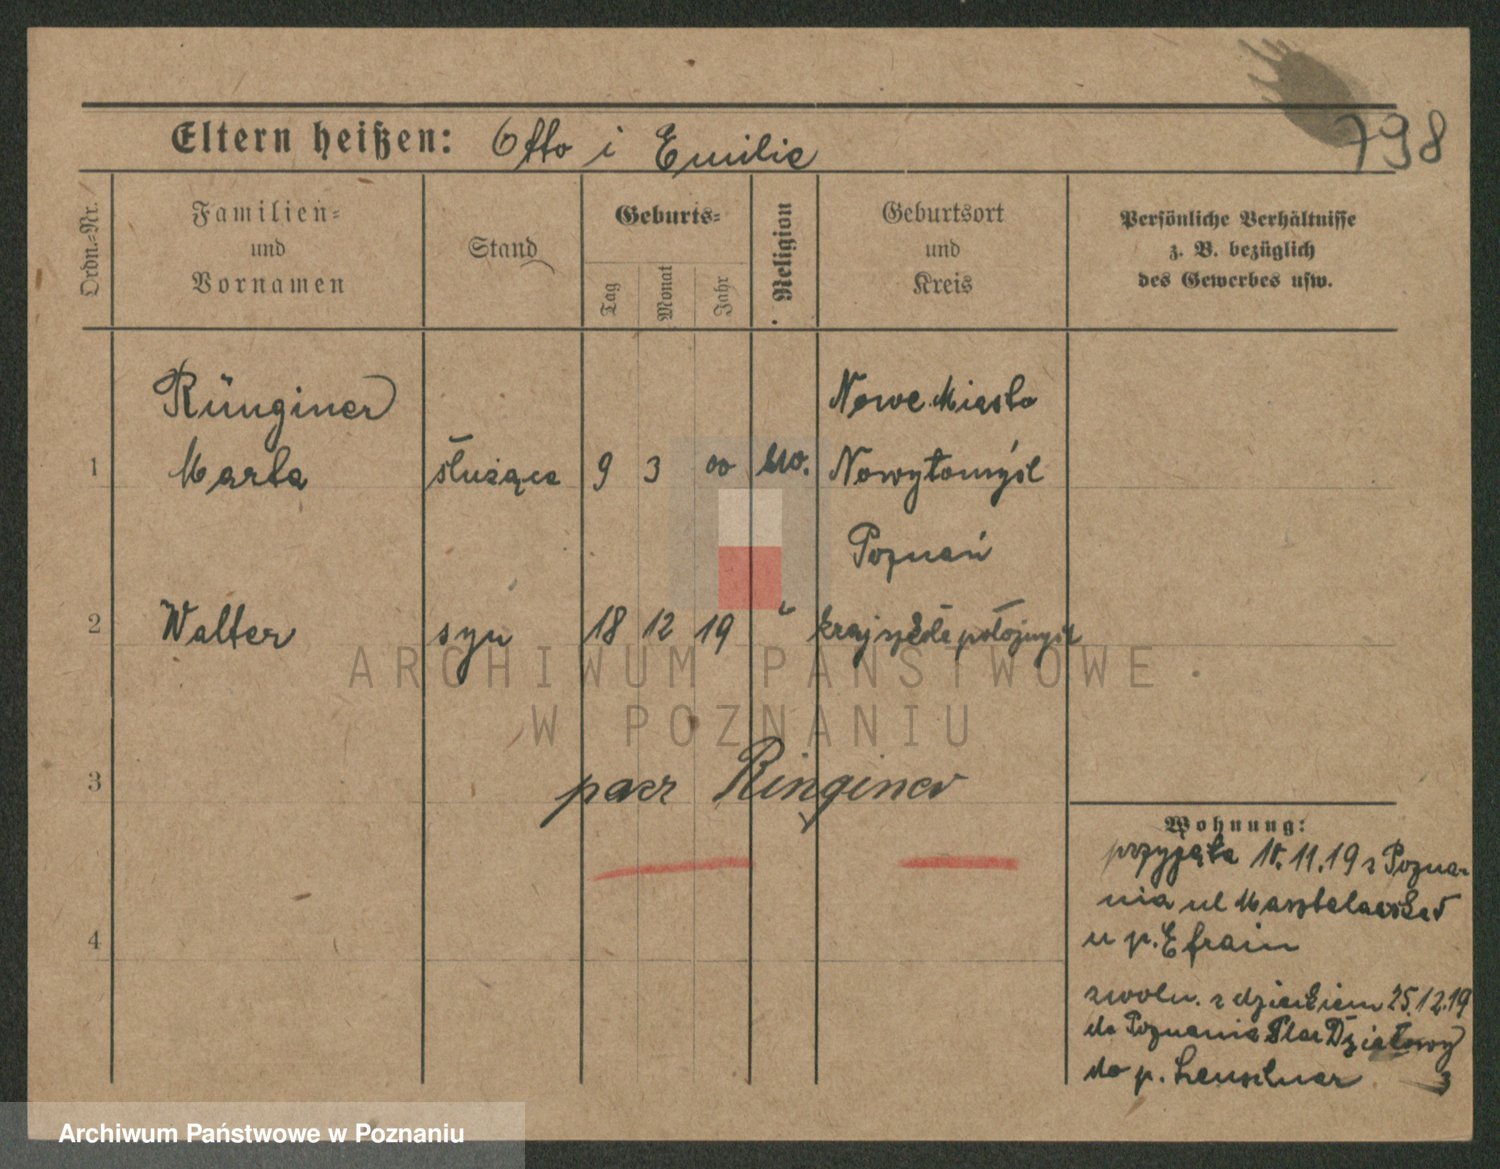 798
Eltern heißen: Otto i Emilie
Ordn.-Nr.
Familien-
und
Vornamen
Stand
Geburts-
Tag
Monat
Jahr
Religion
Geburtsort
und
Kreis
Persönliche Verhältnisse
z. B. bezüglich
des Gewerbes usw.
Rünginer
Nowe Miasto
1 Marta służąca 9 3 00 Nowytomyśl
Poznań
2 Walter syn 18 12 19 "
ARCHIWUM PAŃSTWOWE
W POZNANIU
3 patrz Ringiner
4
Wohnung:
przyjęta 10.11.19 z Pozna-
nia ul Masztalarska 8
u p. Efraim
zwoln. z dzieckiem 25.12.19
do Poznania Plac Działowy
do p. 3
Archiwum Państwowe w Poznaniu